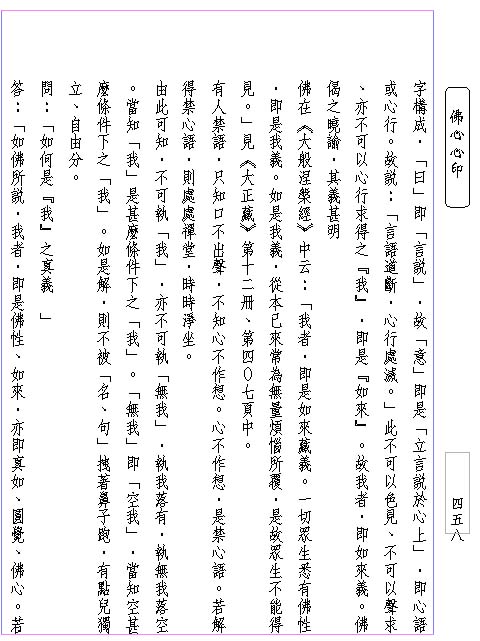 佛心心印
字構成．「曰」即「言說」．故「意」即是「立言說於心上」．即心語
或心行。故說：「言語道斷．心行處滅。」此不可以色見、不可以聲求
、亦不可以心行求得之『我』．即是『如來』。故我者．即如來義。佛
偈之曉諭．其義甚明
佛在《大般涅槃經》中云：「我者．即是如來藏義。一切眾生悉有佛性
．即是我義。如是我義．從本已來常為無量煩惱所覆．是故眾生不能得
見。」見《大正藏》第十二冊、第四０七頁中。
有人禁語．只知口不出聲．不知心不作想。心不作想．是禁心語。若解
得禁心語．則處處禪堂．時時淨坐。
由此可知．不可執「我」．亦不可執「無我」．執我落有．執無我落空
。當知「我」是甚麼條件下之「我」。「無我」即「空我」．當知空甚
麼條件下之「我」。如是解．則不被「名、句」拽著鼻子跑．有點兒獨
立、自由分。
問：「如何是『我』之真義　」
答：「如佛所說．我者．即是佛性、如來．亦即真如、圓覺、佛心。若
四五八